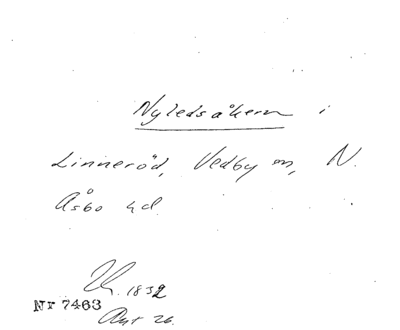 Nyledsåkern i
Linneröd, Vedby sn, N.
Åsbo hd.
1832
Nr 7463
Akt 26.